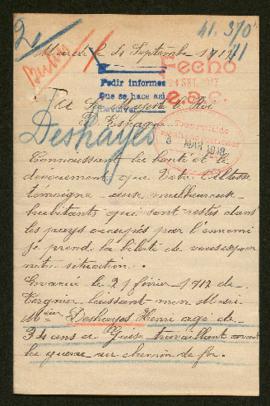 41.370
Mairé le 4 Septembre 1917
FECHO
4 SET. 1917
Pedir informes
Que se hace así
A Sa Majesté le Roi
d'Espagne
DESHAYES
5 MAR 1918
Connaissant la bonté et le
dévouement que Votre Altesse
témoigne aux malheureux
habitants qui sont restés dans
les pays occupés par l'ennemi
je prend la liberté de vous exposer
notre situation.
Evacuée le 21 février 1917 de
Tergnier laissant mon Mari
Mr Deshayes Henri agé de
34 ans à Guise travaillant avant
la guerre au chemin de fer.